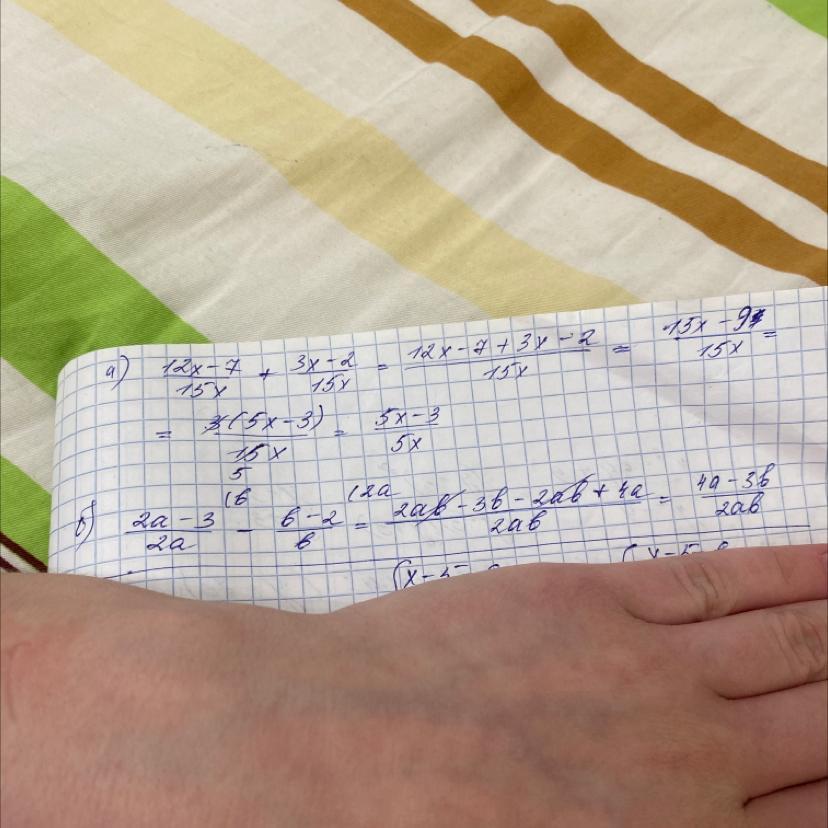 а) (12x-7)/15x + (3x-2)/15x = (12x-7+3x-2)/15x = (15x-9)/15x =
= 3(5x-3)/15x = (5x-3)/5x
5
(в (2a
б) (2a-3)/2a - (в-2)/в = (2aв-3в-2aв+4a)/2aв = (4a-3в)/2aв